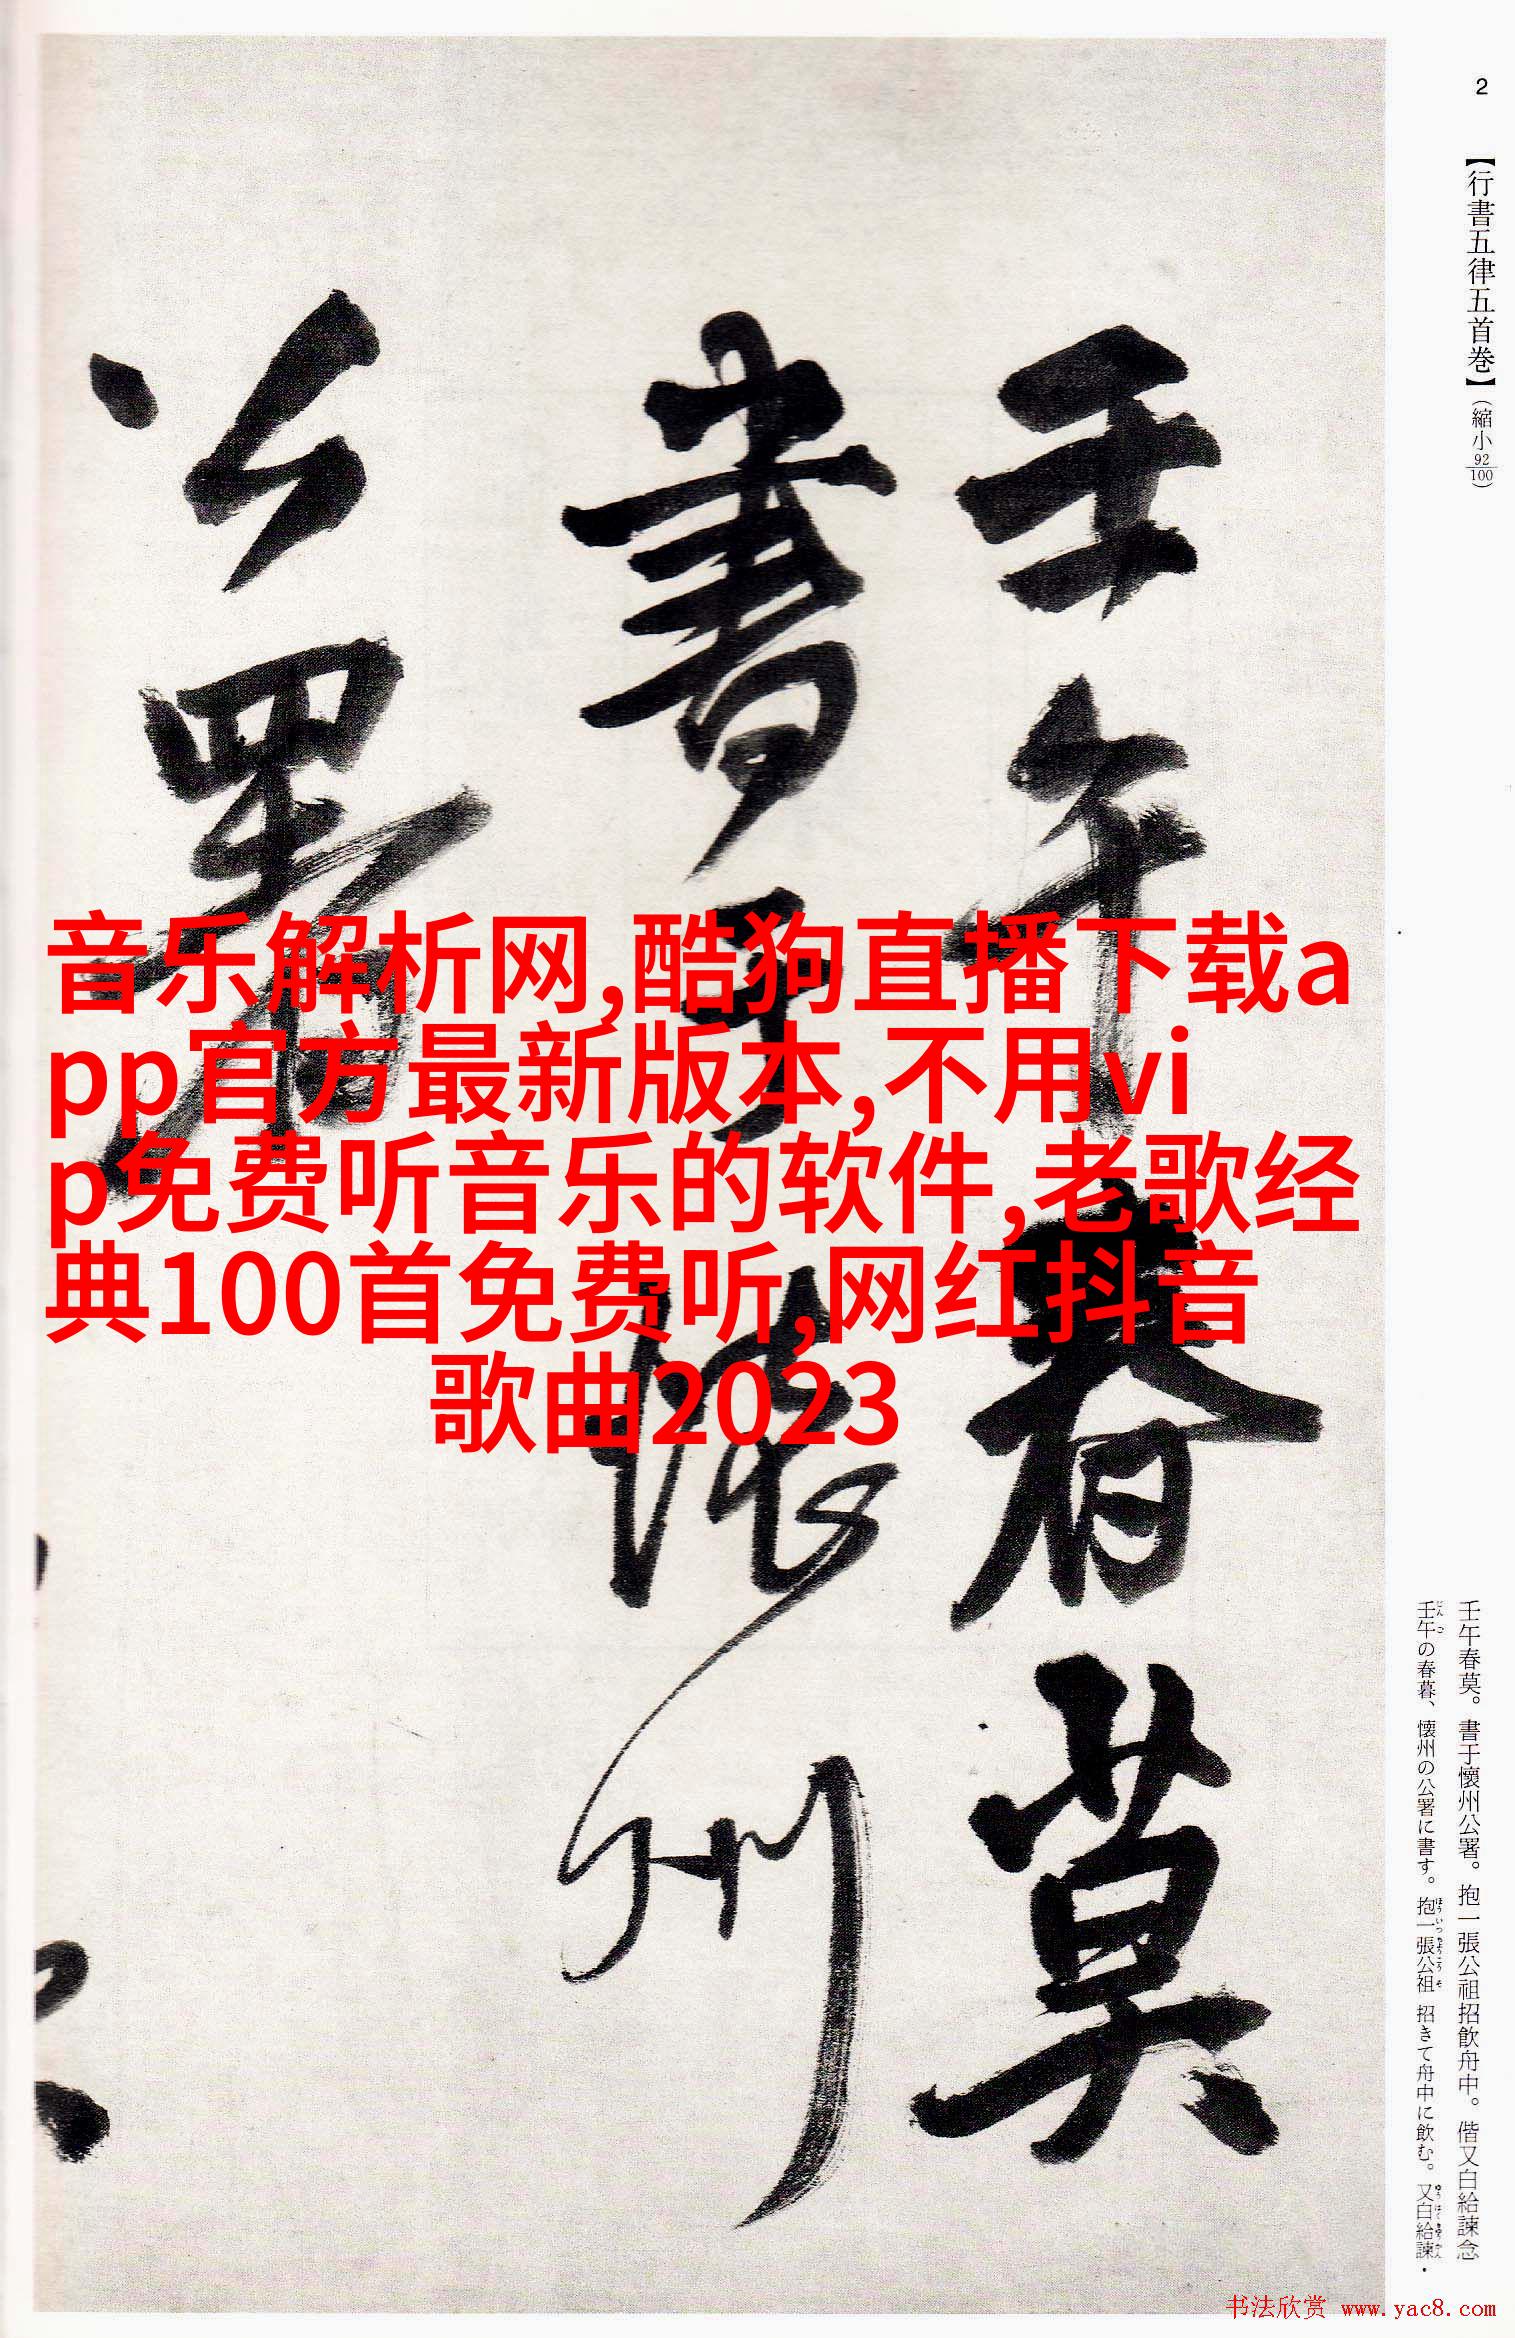 2
【行書五律五首巻】（縮小92/100）
壬午春莫
書于懐州
公署
音乐解析网,酷狗直播下载a
pp官方最新版本,不用vi
p免费听音乐的软件,老歌经
典100首免费听,网红抖音
歌曲2023
壬午春莫。書于懷州公署。抱一張公祖招飮舟中。偕又白給諫念
壬午の春暮、懐州の公署に書す。抱一張公祖 招きて舟中に飲む。又白給諫・
书法欣赏 www.yac8.com